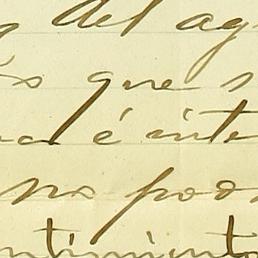 del ag
que s
é inte
no pod
ntimiento